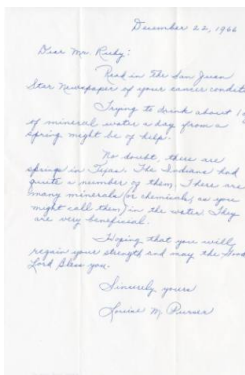 December 22, 1966
Dear Mr. Ruby:
Read in The San Juan
Star Newspaper of your cancer condit
Trying to drink about 1
of mineral water a day from a
spring might be of help.
No doubt, there are
springs in Texas. The Indians had
quite a number of them. There are
many minerals (or chemicals, as you
might call them) in the water. They
are very beneficial.
Hoping that you will
regain your strength and may the Good
Lord Bless you.
Sincerely yours
Louise M.